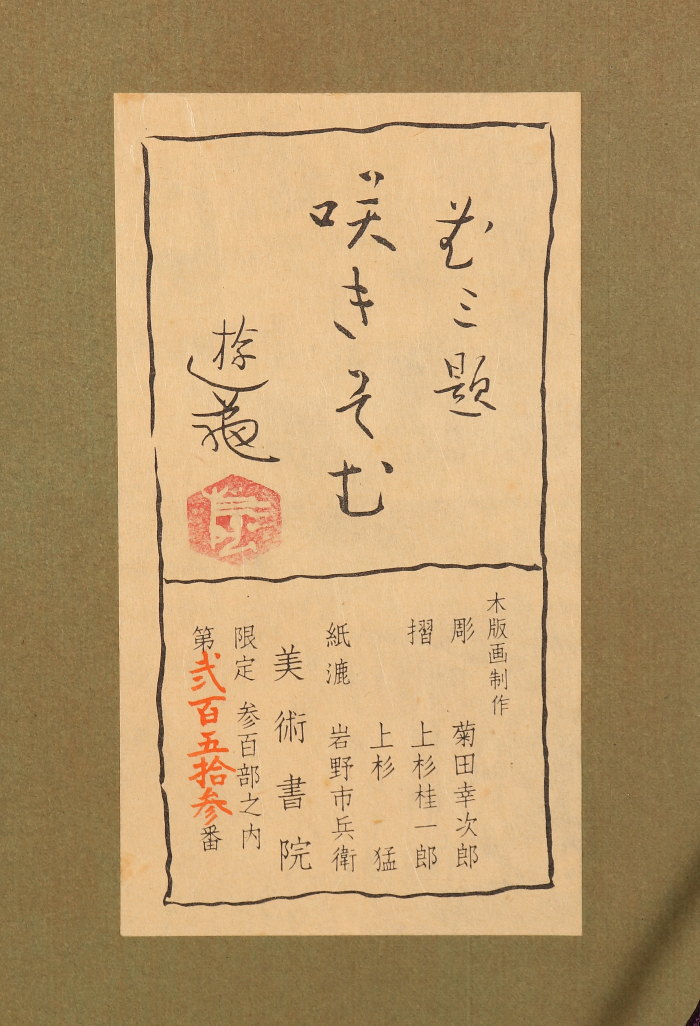 花三題
咲きそむ
遊亀
木版画制作
彫 菊田幸次郎
摺 上杉桂一郎
上杉 猛
紙漉 岩野市兵衛
美術書院
限定 参百部之内
第弐百五拾参番